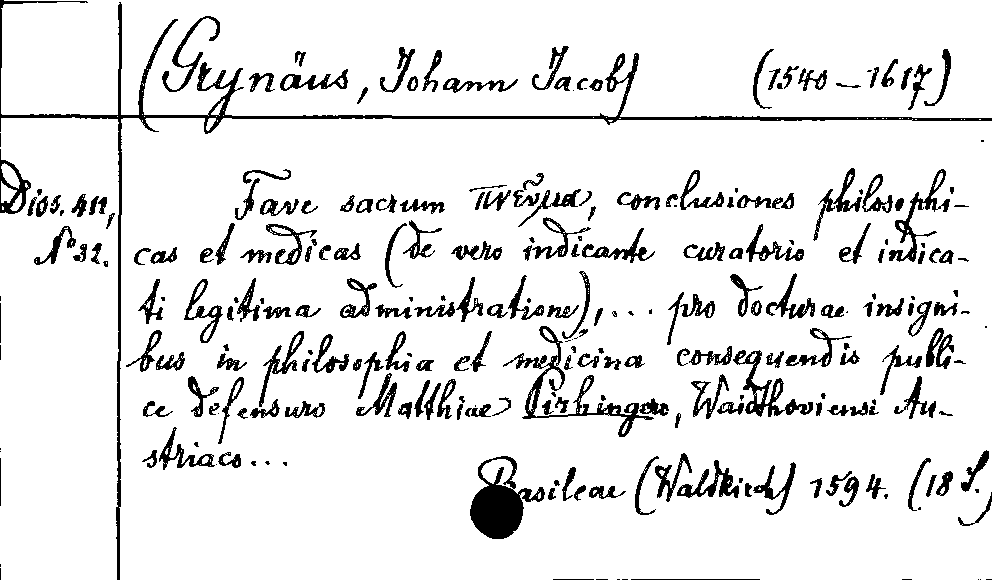 (Grynäus, Johann Jacob) (1540–1617)
Diss. 411,
No 32.
Fave sacrum πνεῦμα, conclusiones philosophi-
cas et medicas (de vero indicante curatorio et indica-
ti legitima administratione), ... pro docturae insigni-
bus in philosophia et medicina consequendis publi-
ce defensuro Matthiae Pirhingero, Waidhoviensi Au-
striaco ...
Basileae (Waldkirch) 1594. (18 S.)